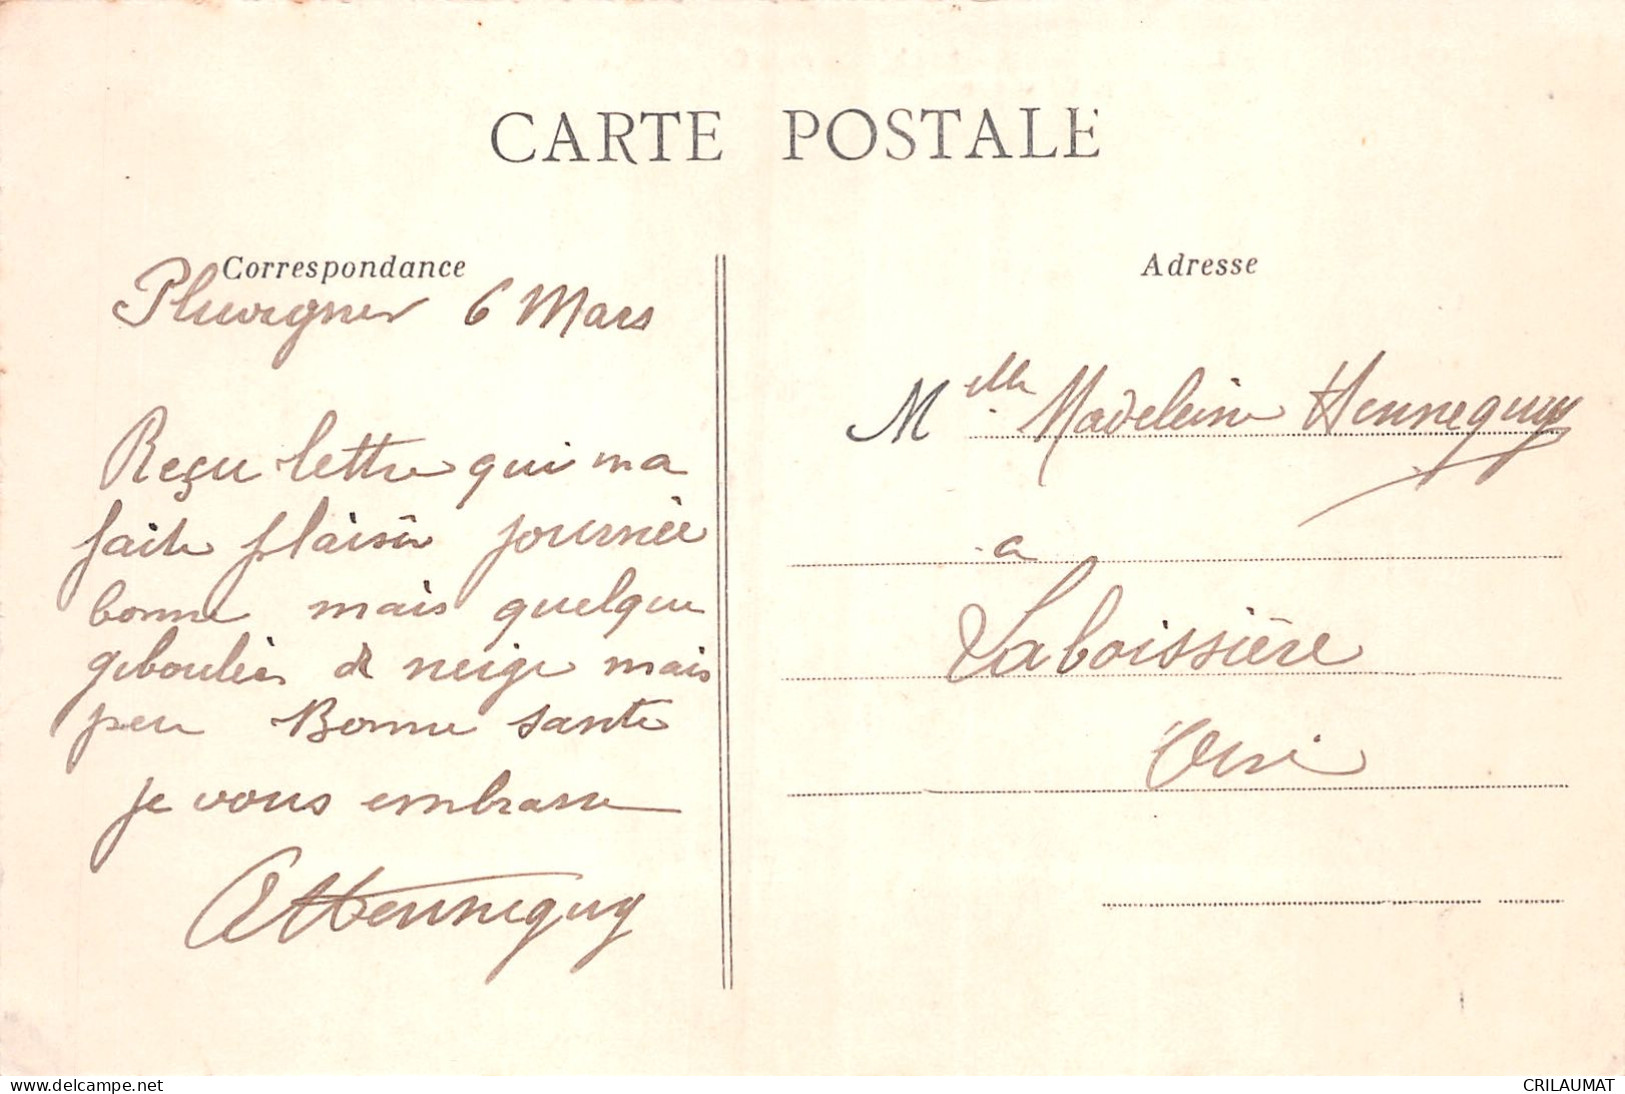 CARTE POSTALE
Correspondance
Pluvigner 6 Mars
Reçu lettre qui ma
faite plaisir journée
bonne mais quelque
giboulées de neige mais
peu Bonne santé
je vous embrasse
Hennequy
Adresse
Melle Madeleine Hennequy
a
Laboissière
Oise
www.delcampe.net
CRILAUMAT